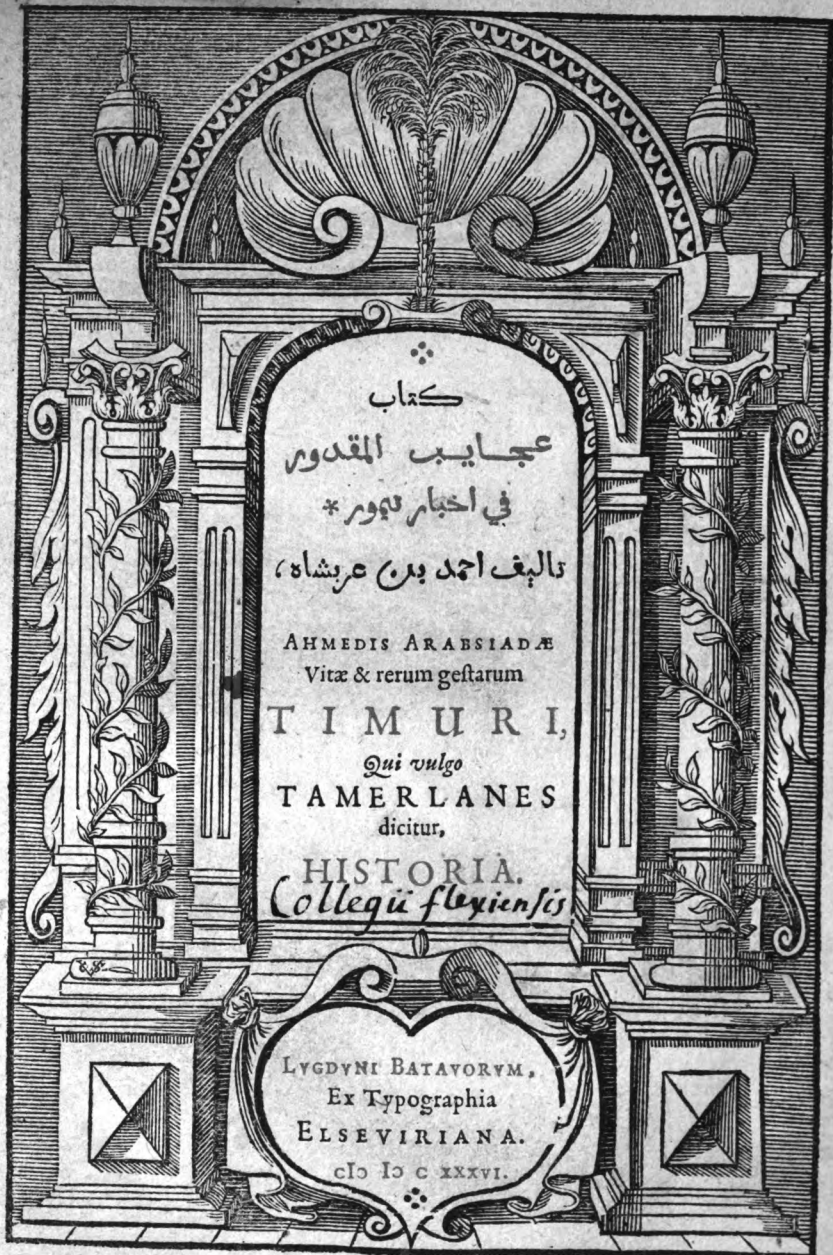 كتاب
عجايب المقدور
في اخبار تيمور *
تاليف احمد بن عربشاه،
AHMEDIS ARABSIADÆ
Vitæ & rerum geſtarum
TIMURI,
Qui vulgo
TAMERLANES
dicitur,
HISTORIA.
Collegii flexiensis
LVGDVNI BATAVORVM,
Ex Typographia
ELSEVIRIANA.
cIↄ Iↄ c XXXVI.